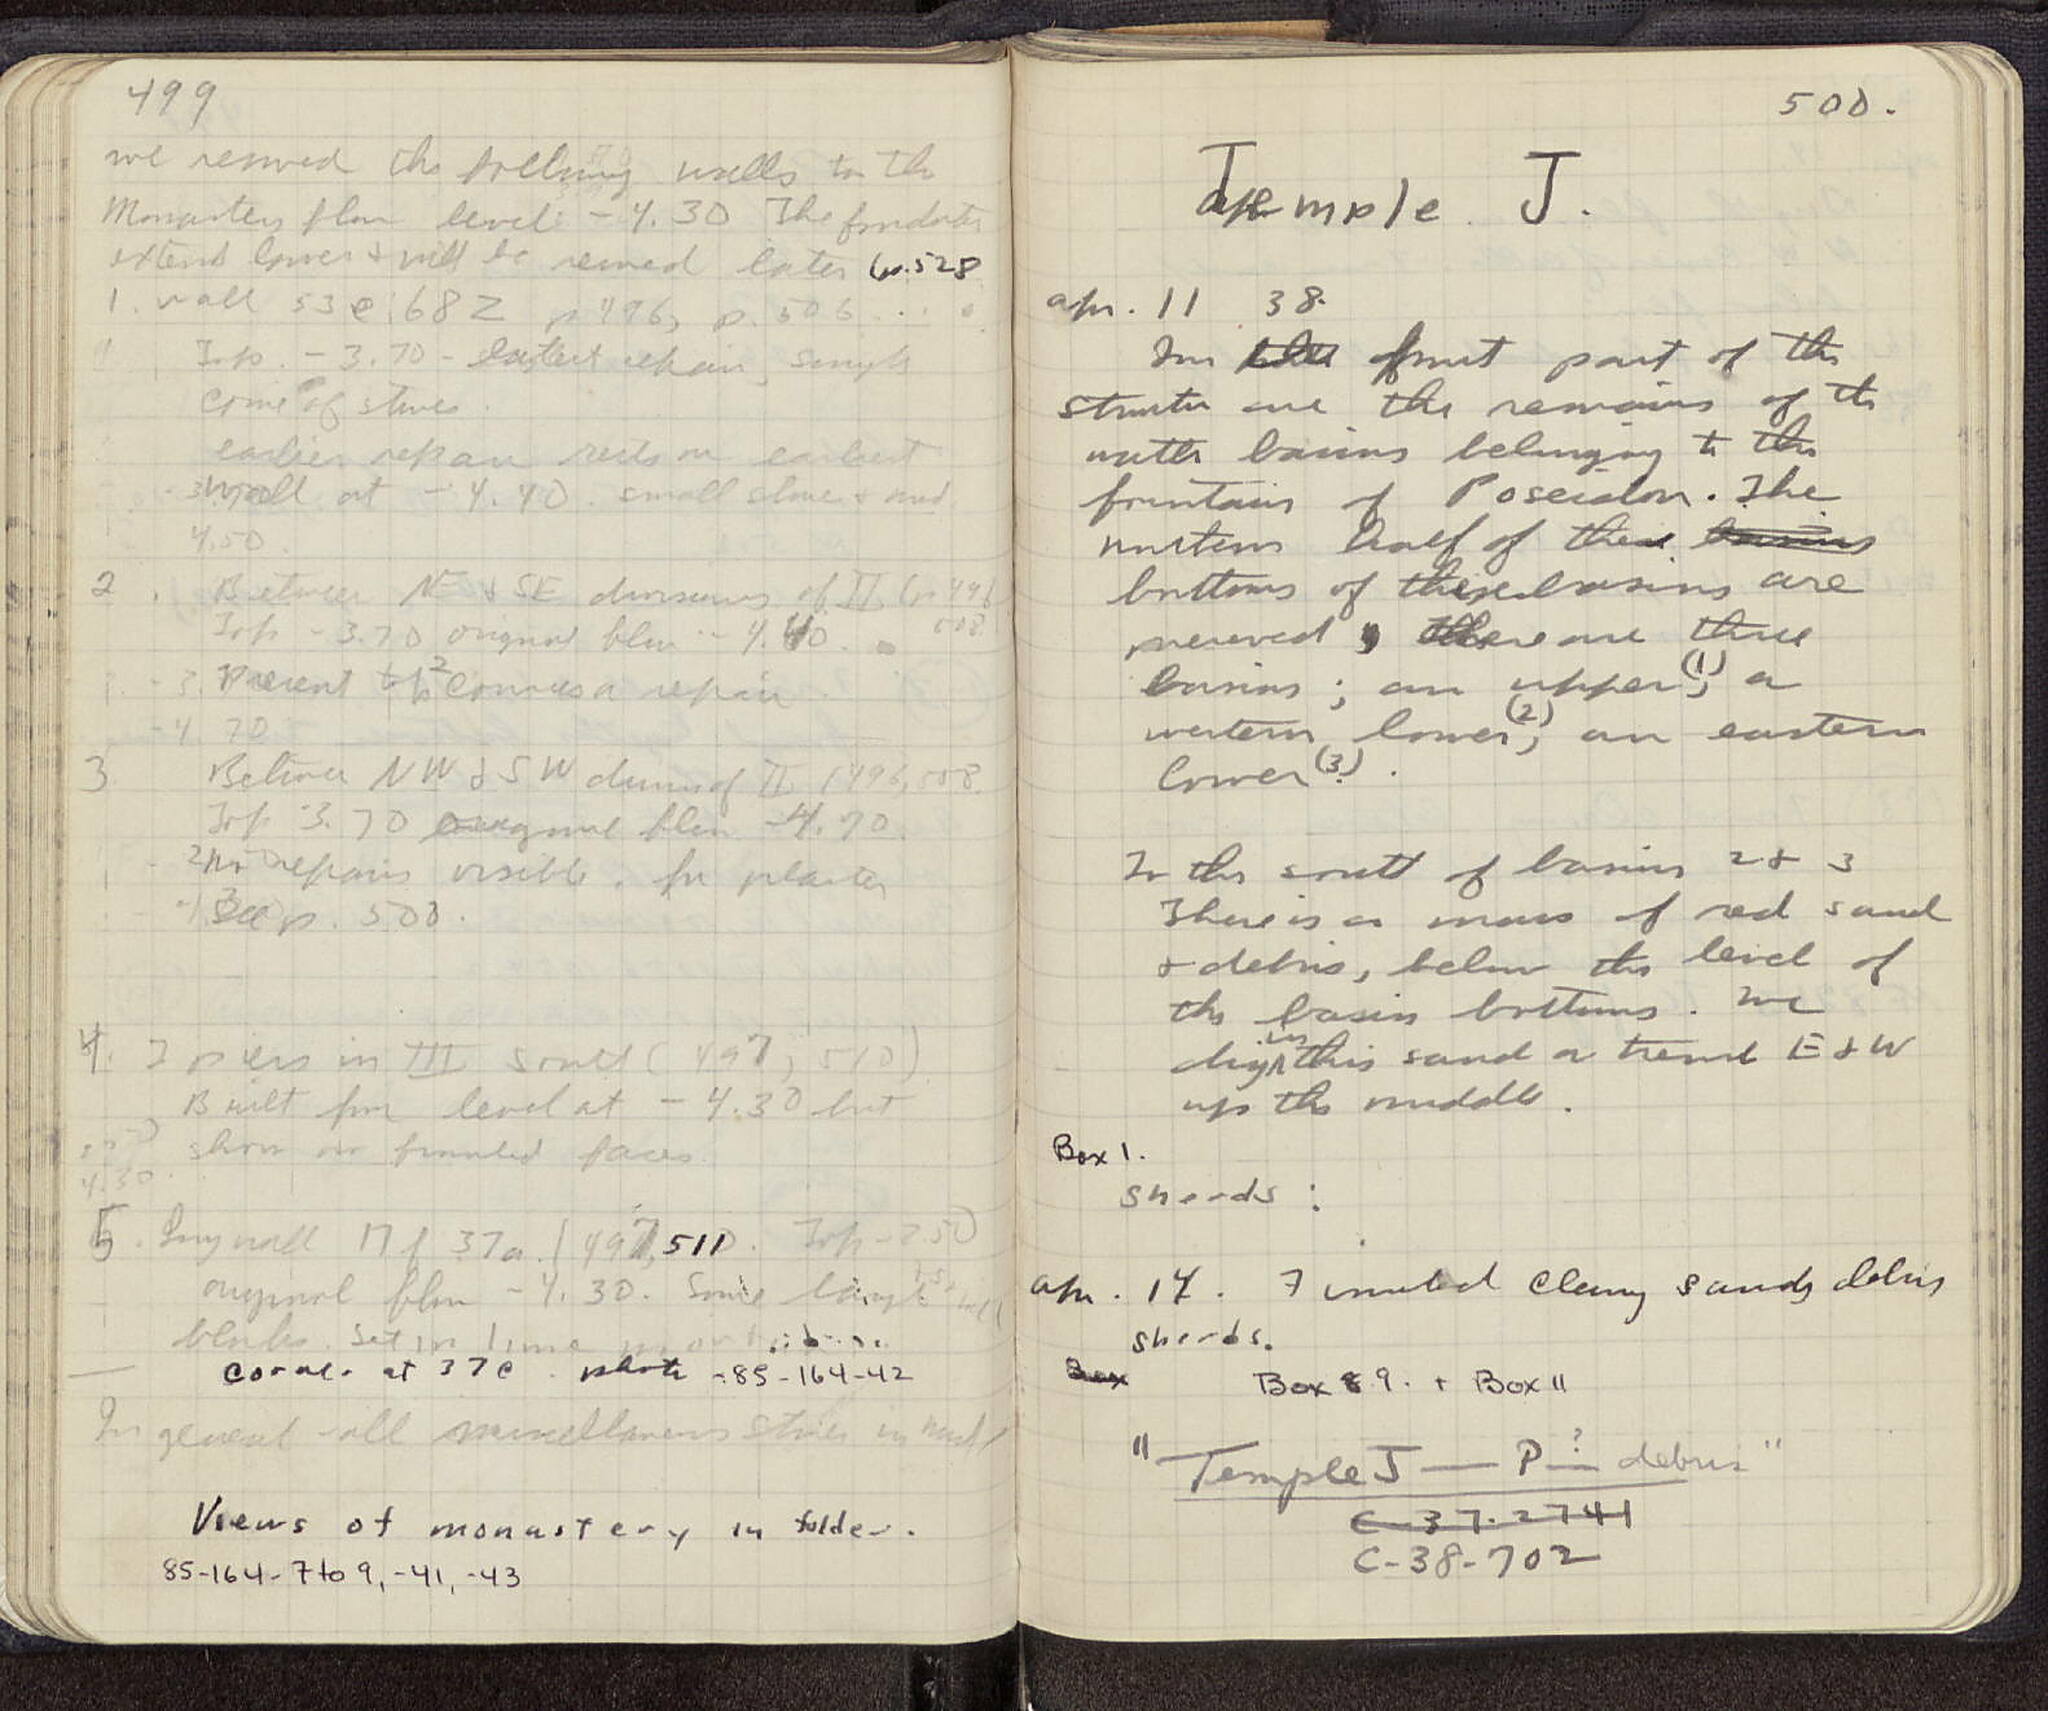 499
we removed the following walls to the
Monastery floor level - 4.30 The
extend lower & will be removed later (p. 528
1. wall 53 e: 68 Z p 496, p. 506
Top. - 3.70 - latest repair, single
course of stones.
earlier repair rests on earliest
wall at - 4.40. small stone & mud
4.50
2. Between NE & SE divisions of II (p 496
Top - 3.70 original floor - 4.40. 508
Present top 2 courses a repair.
3 Between NW & SW division of II (496, 508.
Top 3.70 original floor - 4.70.
no repairs visible. for plaster
See p. 500.
4. 2 piers in III South (497, 510)
Built from level at - 4.30 but
show no finished faces.
4.30.
5. Long wall N of 37a (497, 510. Top - 2.50
original floor - 4.30. Some large
blocks. Set in lime
Corner at 37C. photo - 85-164-42
In general all miscellaneous stones in mud
Views of monastery in folder.
85-164-7 to 9, -41, -43
500.
Temple J.
Apr. 11 38.
In front part of the
structure are the remains of the
water basins belonging to the
fountain of Poseidon. The
western half of the basins
bottoms of these basins are
preserved, there are three
basins; an upper (1), a
western lower (2), an eastern
lower (3).
To the south of basins 2 & 3
There is a mass of red sand
& debris, below the level of
the basin bottoms. We
dig in this sand a trench E & W
up the middle.
Box 1.
sherds:
Apr. 14. Finished clearing sandy debris
sherds.
Box
Box 8 9. + Box 11
"Temple J — P ? — debris"
C-37-2741
C-38-702